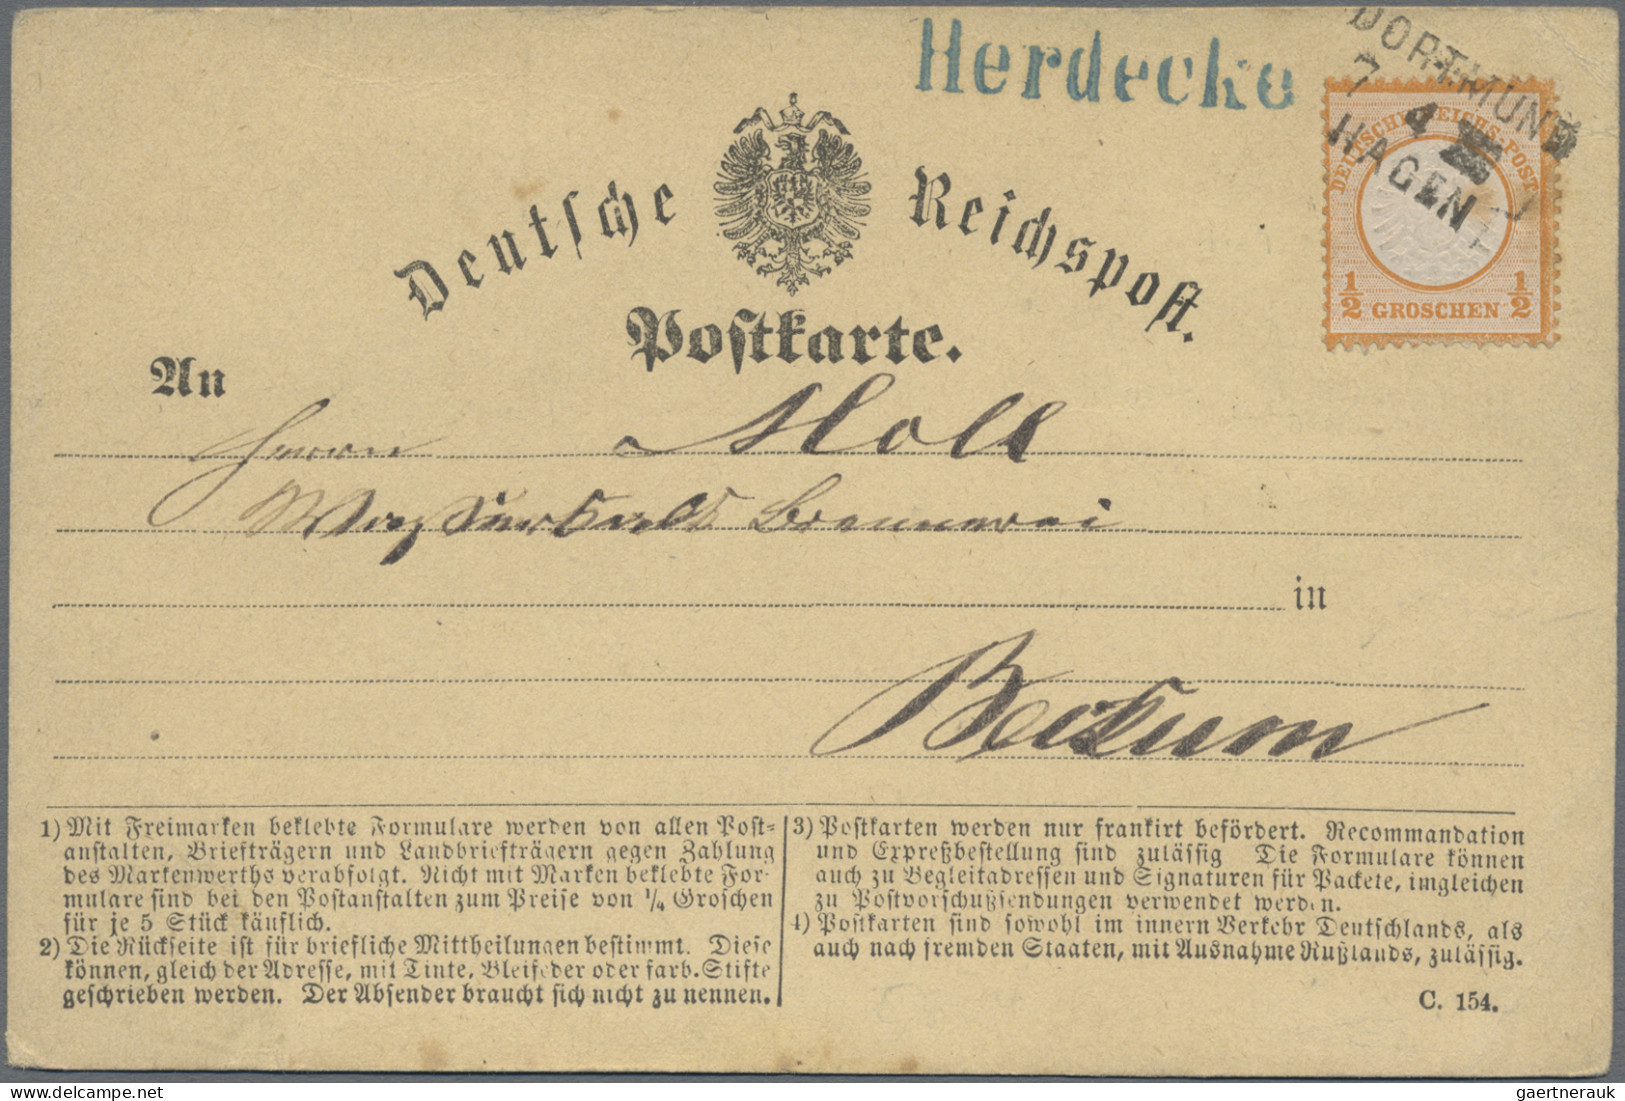 Herdecke
DORTMUND
7 4
HAGEN
DEUTSCHE REICHS-POST
½ GROSCHEN ½
Deutsche Reichspost.
Postkarte.
An
Herrn Moll
Brennerei
in
Beckum
1) Mit Freimarken beklebte Formulare werden von allen Post-
anstalten, Briefträgern und Landbriefträgern gegen Zahlung
des Markenwerths verabfolgt. Nicht mit Marken beklebte For-
mulare sind bei den Postanstalten zum Preise von ¼ Groschen
für je 5 Stück käuflich.
2) Die Rückseite ist für briefliche Mittheilungen bestimmt. Diese
können, gleich der Adresse, mit Tinte, Bleifeder oder farb. Stifte
geschrieben werden. Der Absender braucht sich nicht zu nennen.
3) Postkarten werden nur frankirt befördert. Recommandation
und Expreßbestellung sind zulässig Die Formulare können
auch zu Begleitadressen und Signaturen für Packete, imgleichen
zu Postvorschußsendungen verwendet werden.
4) Postkarten sind sowohl im innern Verkehr Deutschlands, als
auch nach fremden Staaten, mit Ausnahme Rußlands, zulässig.
C. 154.
gaertnerauk